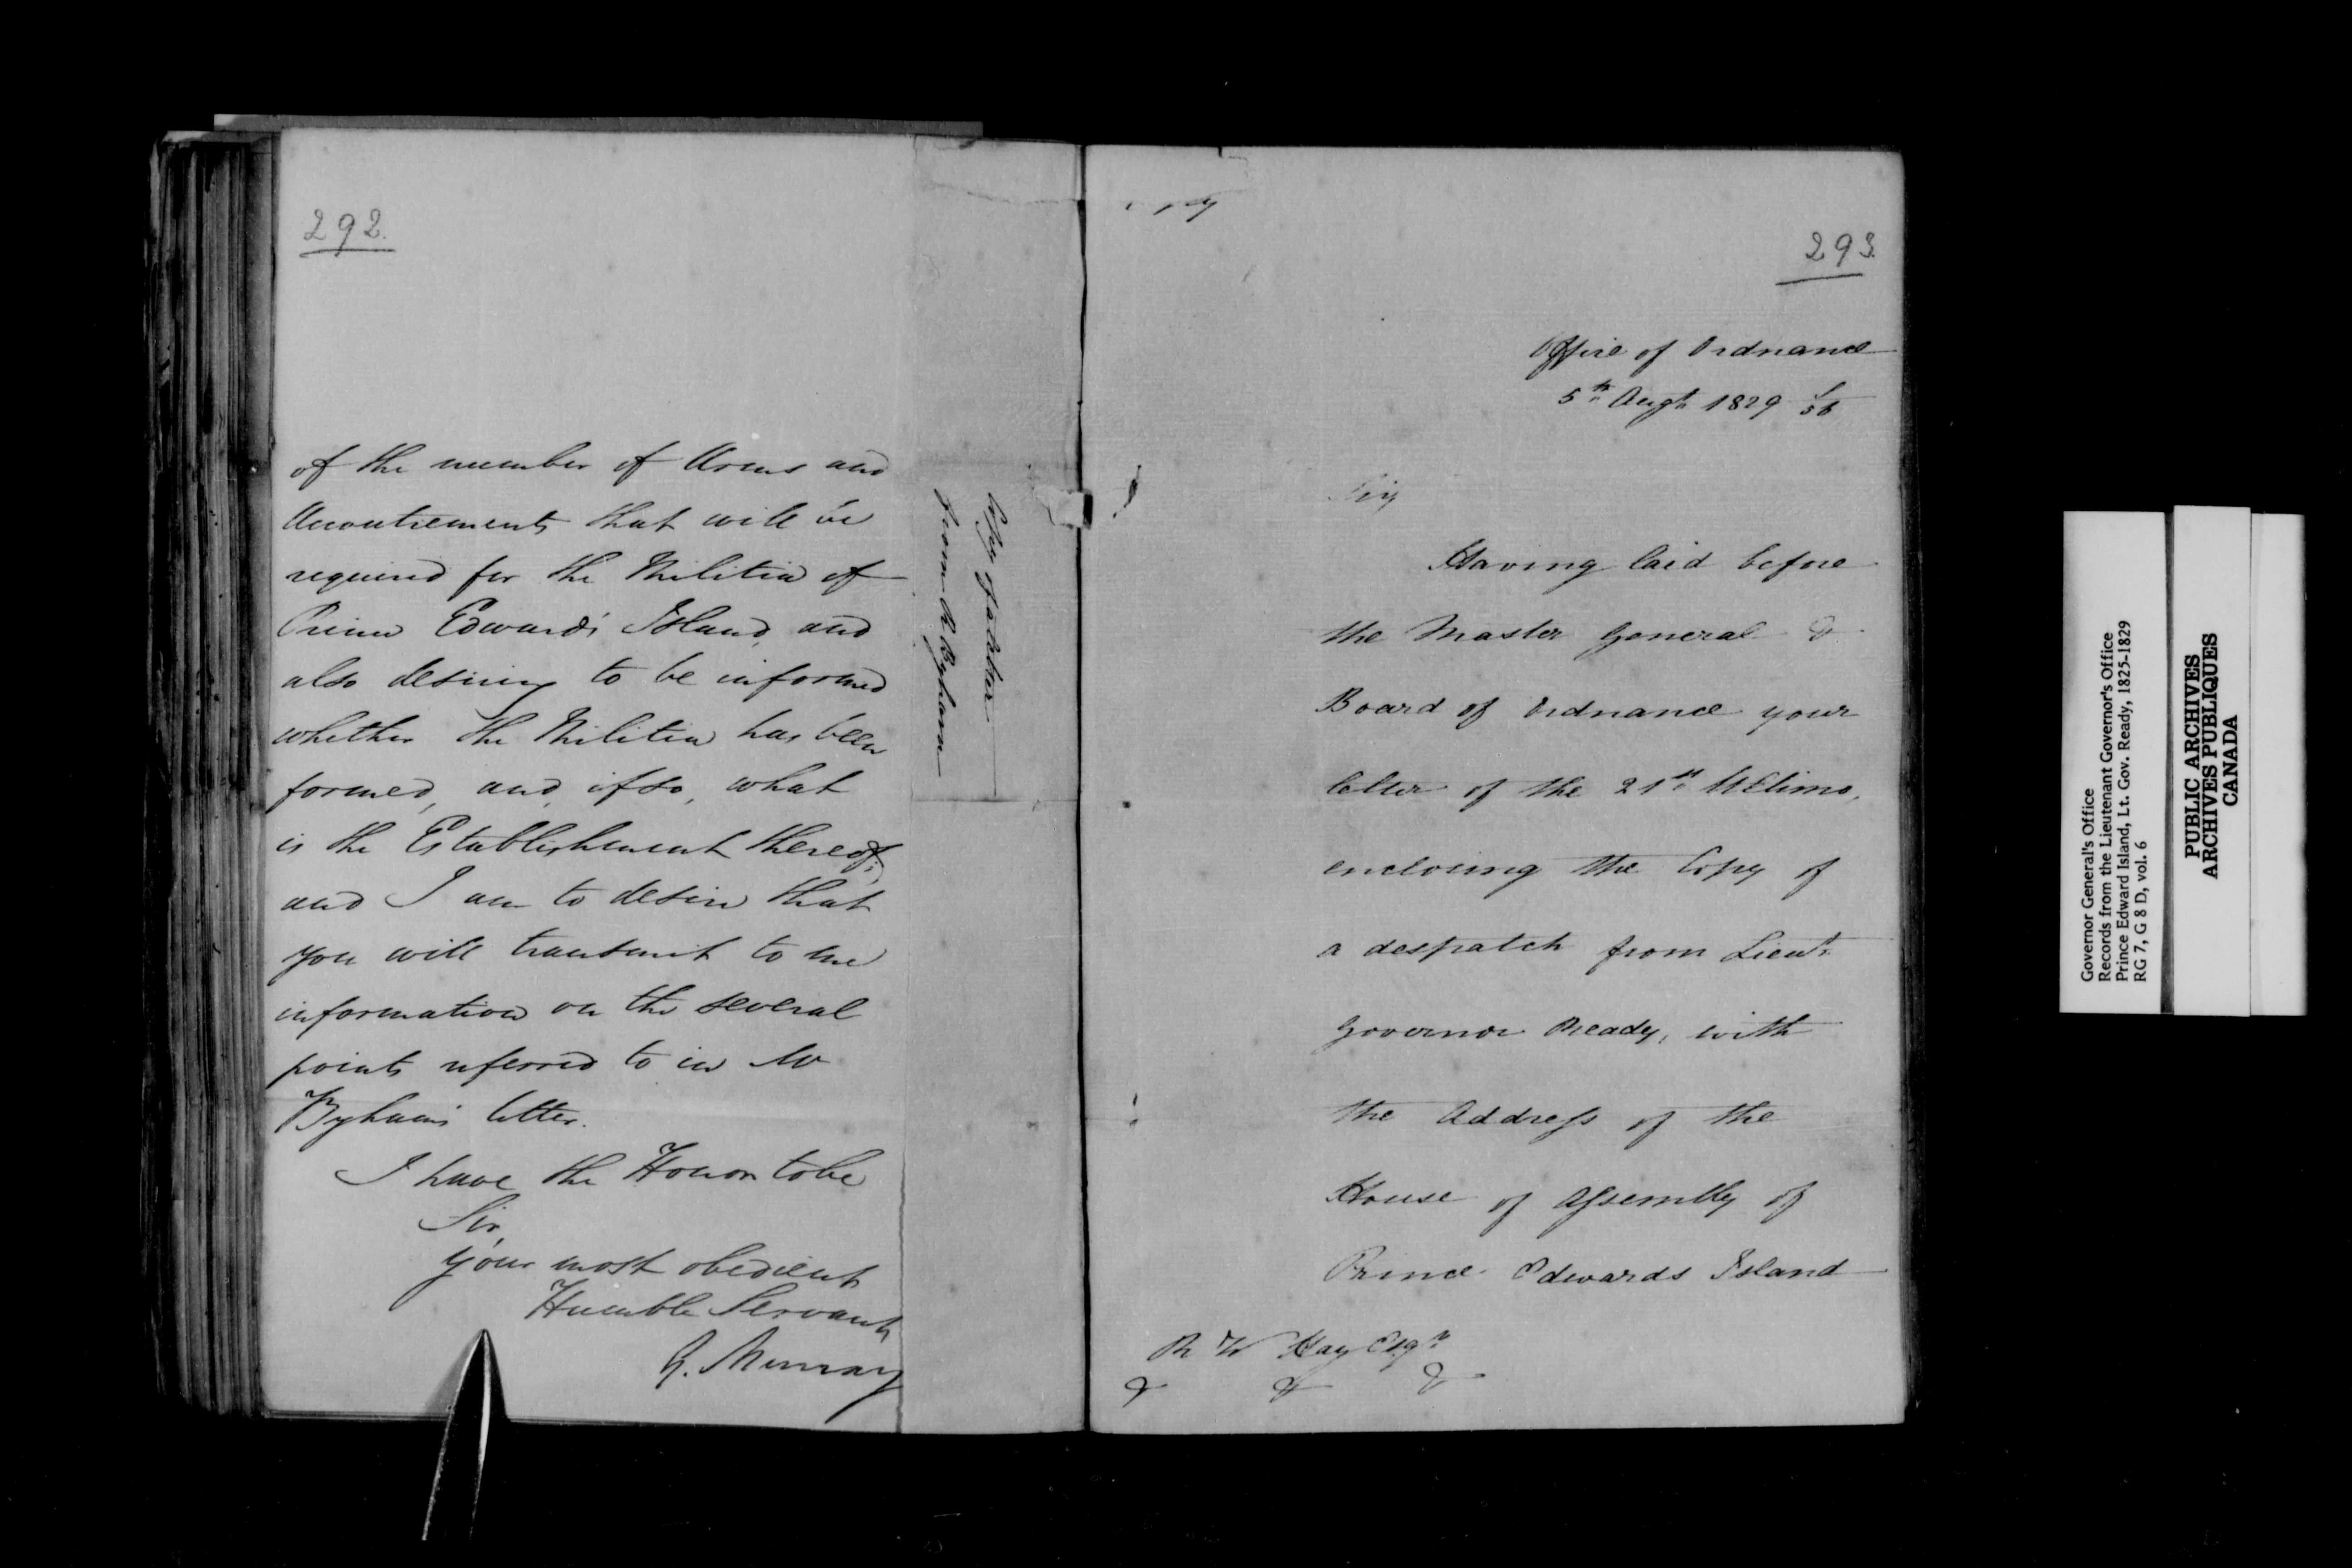 292.
of the number of Arms and
Accoutrements that will be
required for the Militia of
Prince Edward's Island, and
also desiring to be informed
whether the Militia has been
formed, and, if so, what
is the Establishment thereof;
and I am to desire that
you will transmit to me
information on the several
points referred to in Mr
Byham's letter.
I have the Honor to be
Sir,
your most obedient
Humble Servant
G. Murray
Copy of a letter
from R Byham
293.
Office of Ordnance
5th Augt 1829
Sir
Having laid before
the Master General &
Board of Ordnance your
letter of the 21st Ultimo,
enclosing the Copy of
a despatch from Lieut
Governor Ready, with
the Address of the
House of Assembly of
Prince Edwards Island
R W Hay Esqr
& & &
Governor General's Office
Records from the Lieutenant Governor's Office
Prince Edward Island, Lt. Gov. Ready, 1825-1829
RG 7, G 8 D, vol. 6
PUBLIC ARCHIVES
ARCHIVES PUBLIQUES
CANADA